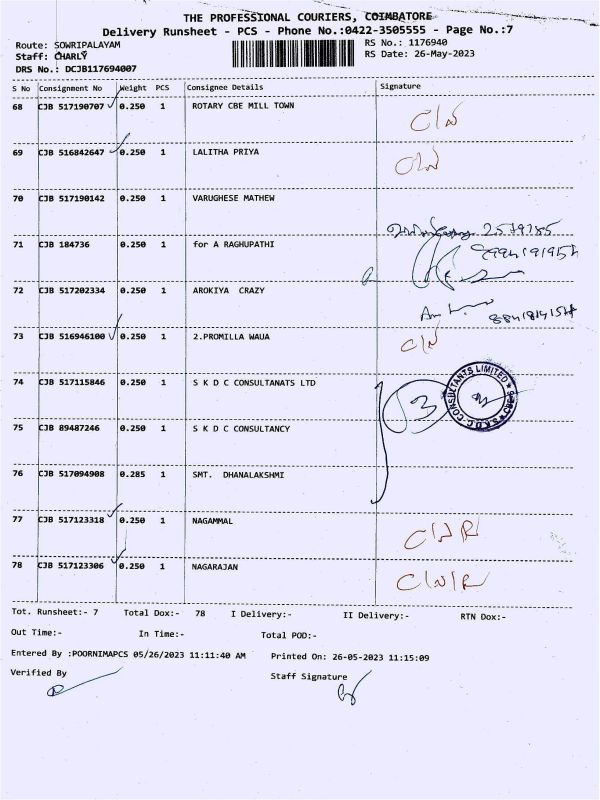 THE PROFESSIONAL COURIERS, COIMBATORE
Delivery Runsheet - PCS - Phone No.:0422-3505555 - Page No.:7
Route: SOWRIPALAYAM
RS No.: 1176940
Staff: CHARLY
RS Date: 26-May-2023
DRS No.: DCJB117694007
S No Consignment No Weight PCS Consignee Details Signature
68 CJB 517190707 0.250 1 ROTARY CBE MILL TOWN
69 CJB 516842647 0.250 1 LALITHA PRIYA
70 CJB 517190142 0.250 1 VARUGHESE MATHEW
71 CJB 184736 0.250 1 for A RAGHUPATHI
72 CJB 517202334 0.250 1 AROKIYA CRAZY
73 CJB 516946100 0.250 1 2.PROMILLA WAUA
74 CJB 517115846 0.250 1 S K D C CONSULTANATS LTD 3
S.K.D.C CONSULTANTS LIMITED
75 CJB 89487246 0.250 1 S K D C CONSULTANCY
76 CJB 517094908 0.285 1 SMT. DHANALAKSHMI
77 CJB 517123318 0.250 1 NAGAMMAL
78 CJB 517123306 0.250 1 NAGARAJAN
Tot. Runsheet:- 7 Total Dox:- 78 I Delivery:- II Delivery:- RTN Dox:-
Out Time:- In Time:- Total POD:-
Entered By :POORNIMAPCS 05/26/2023 11:11:40 AM Printed On: 26-05-2023 11:15:09
Verified By Staff Signature